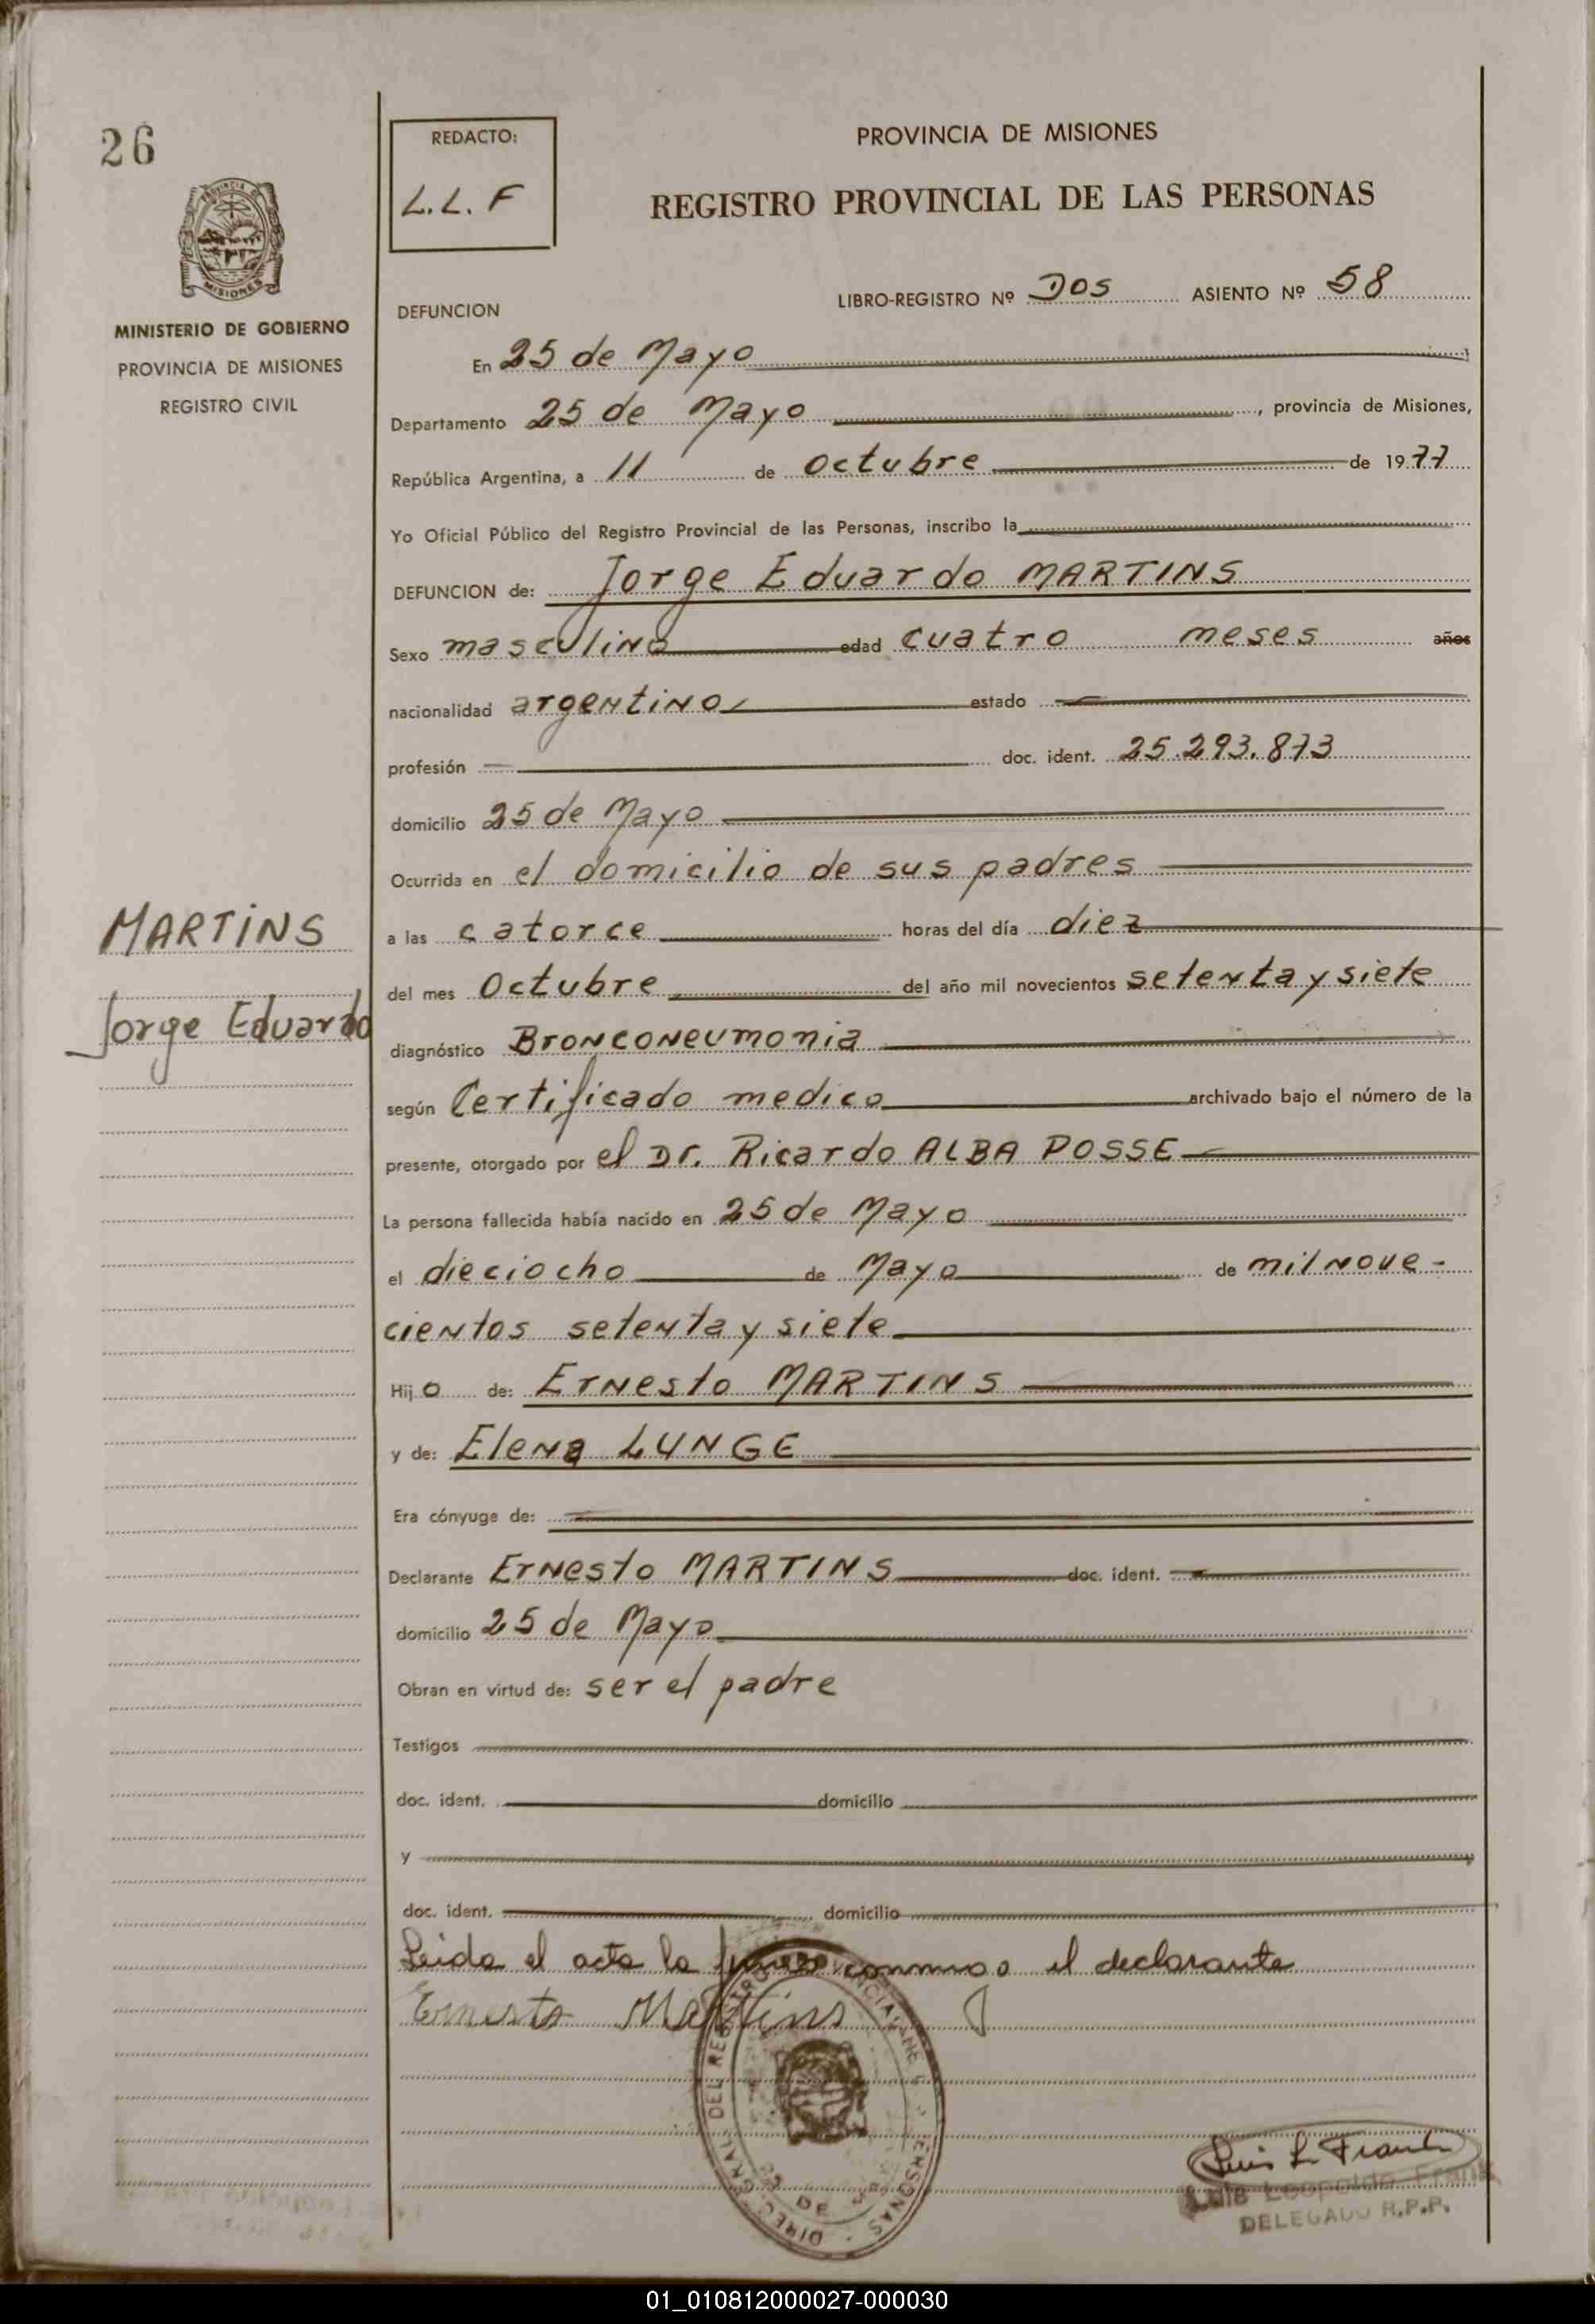 26
REDACTO:
L.L.F
PROVINCIA DE MISIONES
REGISTRO PROVINCIAL DE LAS PERSONAS
MISIONES
MINISTERIO DE GOBIERNO
PROVINCIA DE MISIONES
REGISTRO CIVIL
DEFUNCION
LIBRO-REGISTRO Nº Dos ASIENTO Nº 58
En 25 de Mayo
Departamento 25 de Mayo, provincia de Misiones,
República Argentina, a 11 de Octubre de 1977
Yo Oficial Público del Registro Provincial de las Personas, inscribo la
DEFUNCION de: Jorge Eduardo MARTINS
Sexo masculino edad cuatro meses años
nacionalidad argentino estado
profesión doc. ident. 25.293.873
domicilio 25 de Mayo
Ocurrida en el domicilio de sus padres
MARTINS
a las catorce horas del día diez
del mes Octubre del año mil novecientos setenta y siete
Jorge Eduardo
diagnóstico Bronconeumonia
según Certificado medico archivado bajo el número de la
presente, otorgado por el Dr. Ricardo ALBA POSSE
La persona fallecida había nacido en 25 de Mayo
el dieciocho de Mayo de mil nove-
cientos setenta y siete
Hijo de: Ernesto MARTINS
y de: Elena LUNGE
Era cónyuge de:
Declarante Ernesto MARTINS doc. ident.
domicilio 25 de Mayo
Obran en virtud de: ser el padre
Testigos
doc. ident. domicilio
y
doc. ident. domicilio
Leida el acta la el declarante
Ernesto Martins
Luis L. Frank
Luis Leopoldo Frank
DELEGADO R.P.P.
01_010812000027-000030